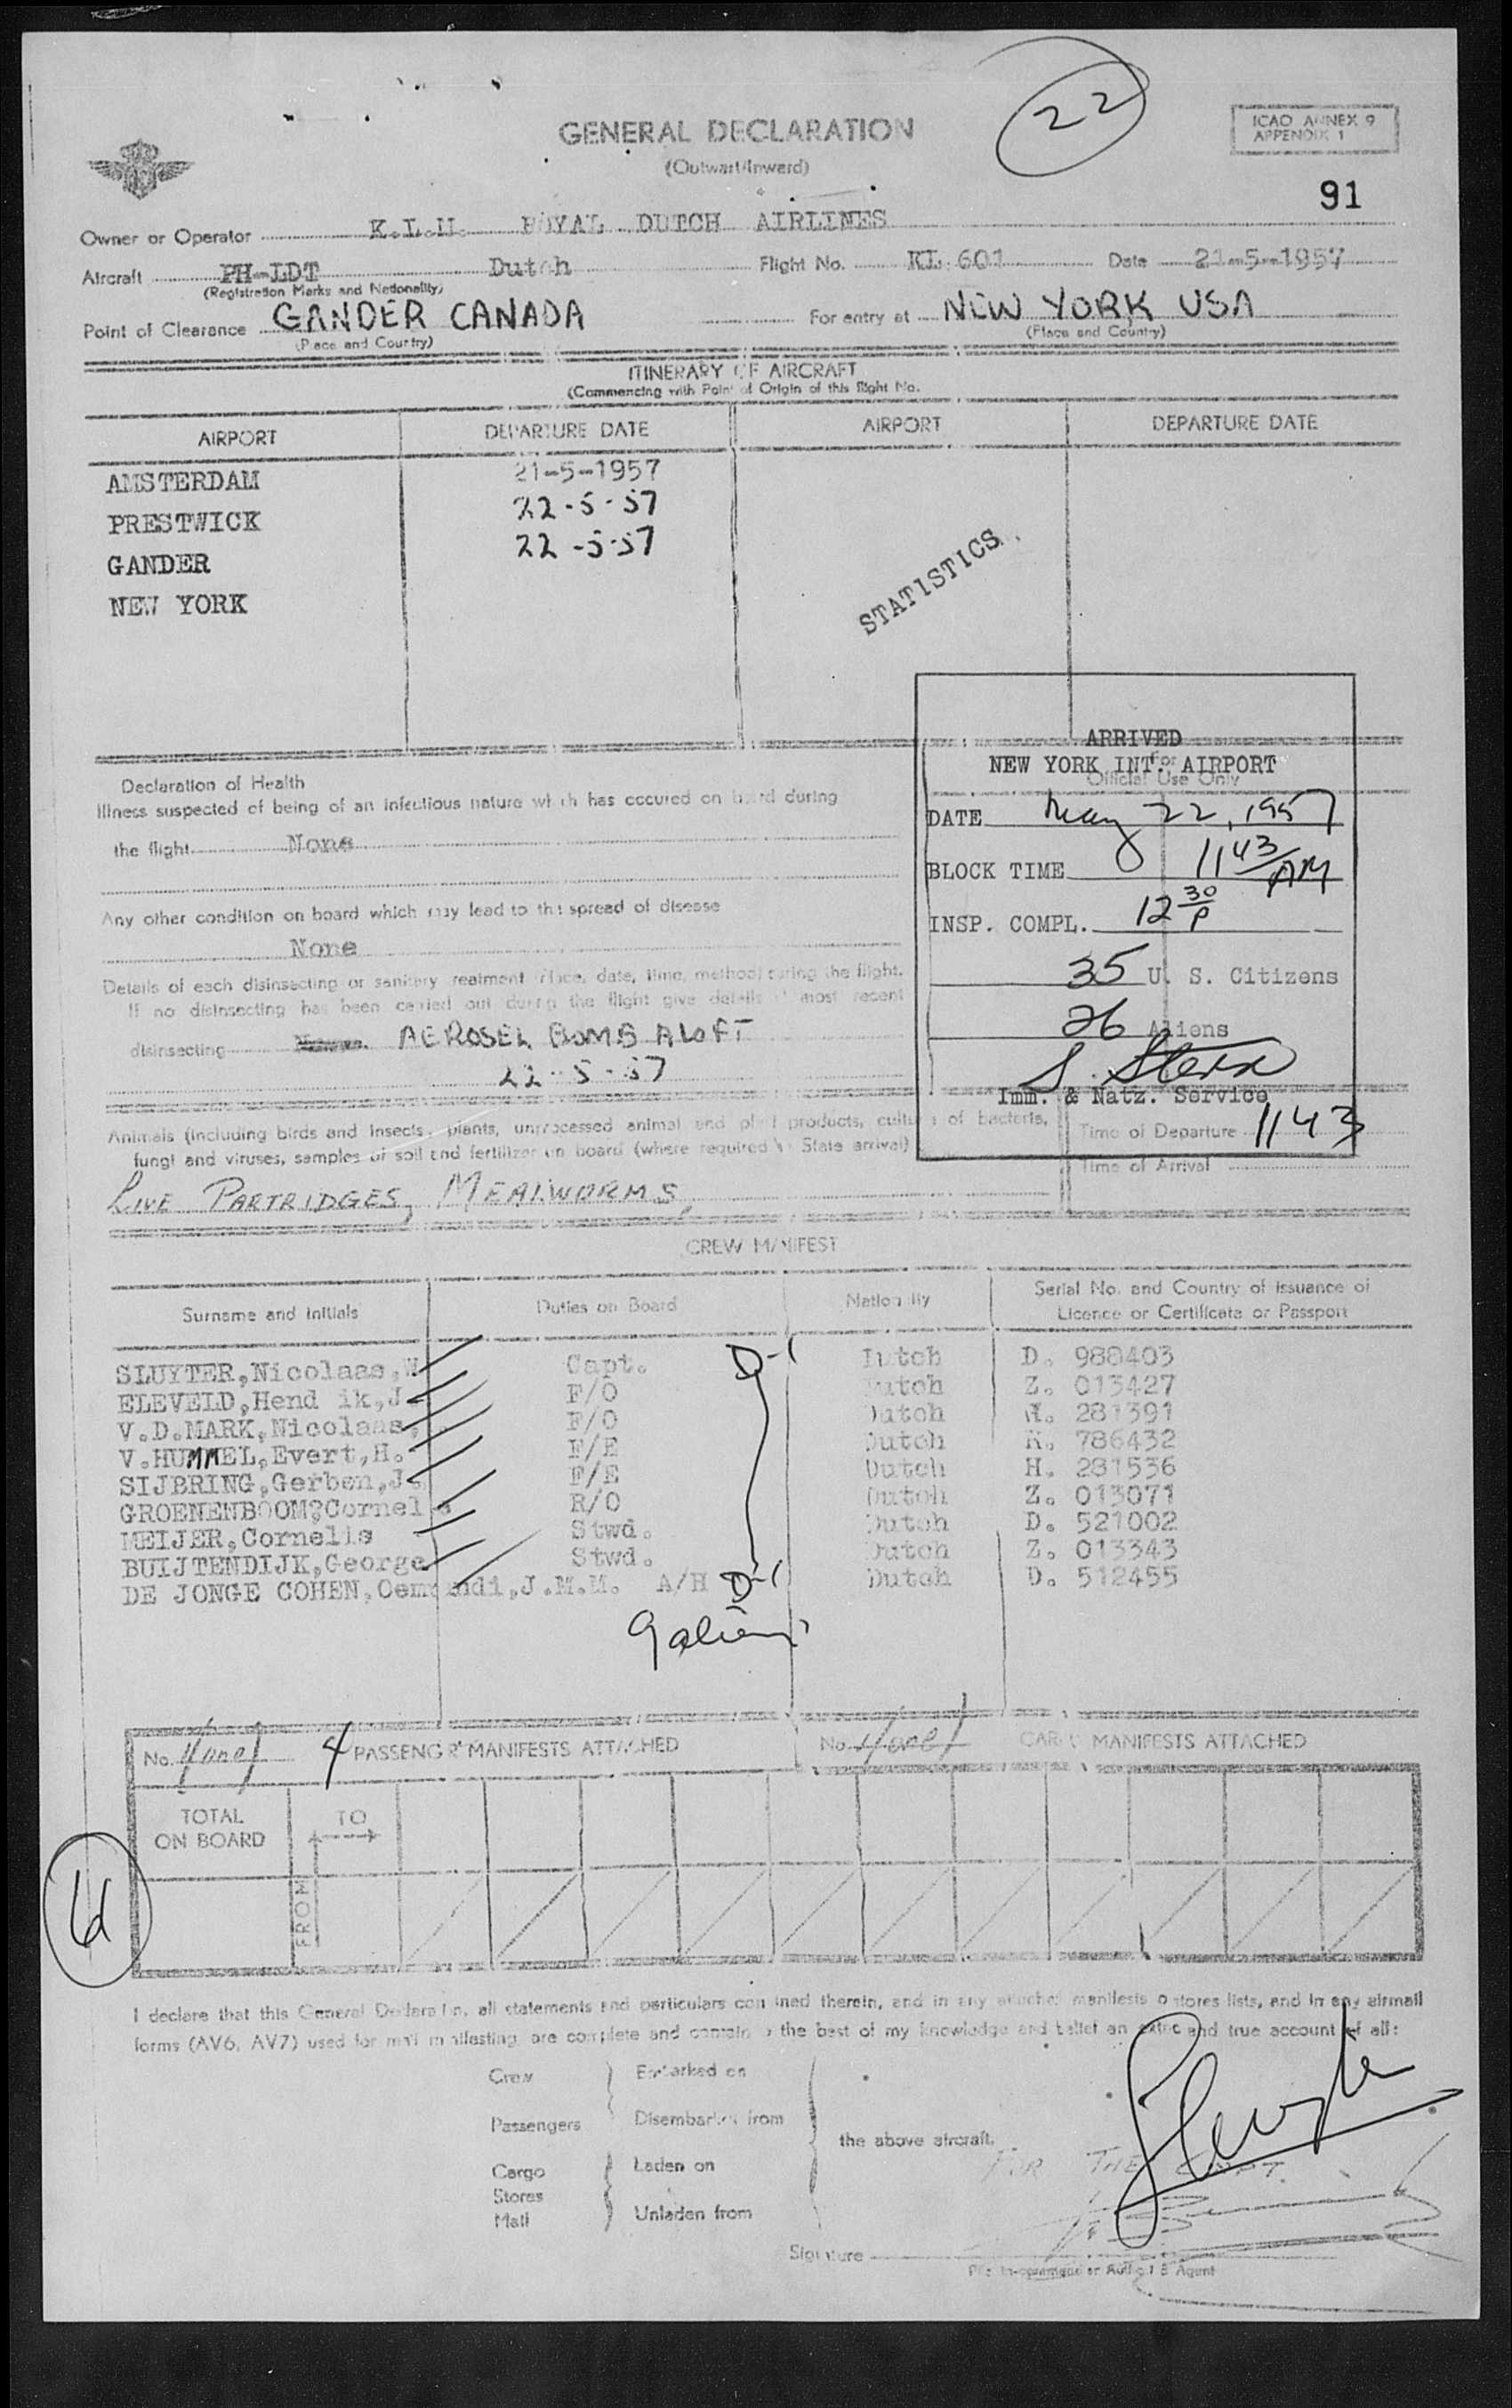 22
GENERAL DECLARATION
(Outward/Inward)
ICAO ANNEX 9
APPENDIX 1
91
Owner or Operator K.L.M. ROYAL DUTCH AIRLINES
Aircraft PH-LDT Dutch Flight No. KL 601 Date 21-5-1957
(Registration Marks and Nationality)
Point of Clearance GANDER CANADA For entry at NEW YORK USA
(Place and Country) (Place and Country)
ITINERARY OF AIRCRAFT
(Commencing with Point of Origin of this flight No.
AIRPORT DEPARTURE DATE AIRPORT DEPARTURE DATE
AMSTERDAM 21-5-1957
PRESTWICK 22-5-57
GANDER 22-5-57
NEW YORK
STATISTICS
ARRIVED
NEW YORK INT. AIRPORT
for Official Use Only
DATE May 22, 1957
BLOCK TIME 1143 AM
INSP. COMPL. 12 30 P
35 U. S. Citizens
26 Aliens
S. Stern
Imm. & Natz. Service
Declaration of Health
Illness suspected of being of an infectious nature which has occured on board during
the flight None
Any other condition on board which may lead to the spread of disease
None
Details of each disinsecting or sanitary treatment (Place, date, time, method) during the flight.
If no disinsecting has been carried out during the flight give details of most recent
disinsecting AEROSEL BOMB ALOFT
22-5-57
Animals (including birds and insects, plants, unprocessed animal and plant products, cultures of bacteria,
fungi and viruses, samples of soil and fertilizer on board (where required by State arrival)
LIVE PARTRIDGES, MEALWORMS,
Time of Departure 1143
Time of Arrival
CREW MANIFEST
Surname and Initials Duties on Board Nationality Serial No. and Country of issuance of
Licence or Certificate or Passport
SLUYTER,Nicolaas,W Capt. D-1 Dutch D. 988403
ELEVELD,Hend ik,J. F/O Dutch Z. 013427
V.D.MARK,Nicolaas, F/O Dutch H. 281391
V.HUMMEL,Evert,H. F/E Dutch K. 786432
SIJBRING,Gerben,J. F/E Dutch H. 281536
GROENENBOOM?Cornel s R/O Dutch Z. 013071
MEIJER,Cornelis Stwd. Dutch D. 521002
BUIJTENDIJK,George Stwd. Dutch Z. 013343
DE JONGE COHEN, J.M.M. A/H D-1 Dutch D. 512455
9 aliens
No. None 4 PASSENGER MANIFESTS ATTACHED No. None CARGO MANIFESTS ATTACHED
TOTAL
ON BOARD
TO
FROM
I declare that this General Declaration, all statements and particulars contained therein, and in any attached manifests o stores lists, and in any airmail
forms (AV6, AV7) used for mail manifesting are complete and contain to the best of my knowledge and belief an exact and true account of all:
Crew Embarked on
Passengers Disembarked from
the above aircraft.
Cargo Laden on
Stores
Mail Unladen from
FOR THE CAPT.
Signature